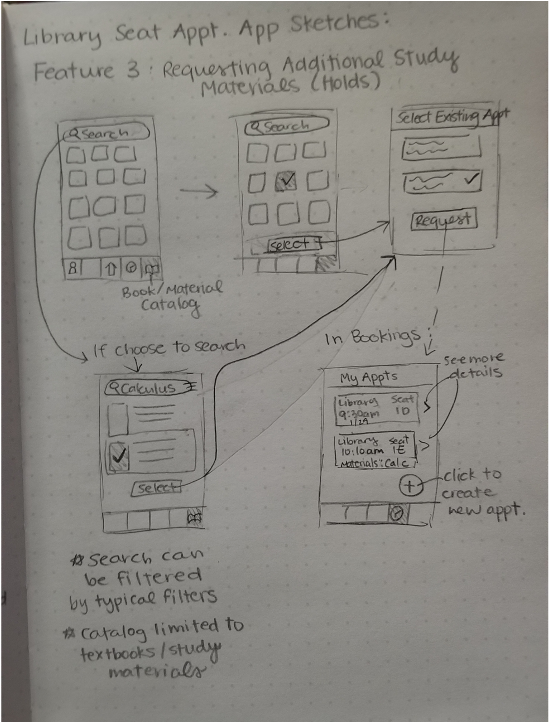 Library Seat Appt. App Sketches:
Feature 3: Requesting Additional Study
Materials (Holds)
Search
Search
Select
Select Existing Appt
Request
Book/Material
Catalog
If choose to search
Calculus
Select
In Bookings:
See more
details
My Appts
Library Seat
9:30am 1D
1/29
Library Seat
10:10am 1E
Materials: Calc
+
click to
create
new appt.
* Search can
be filtered
by typical filters
* Catalog limited to
textbooks/study
materials